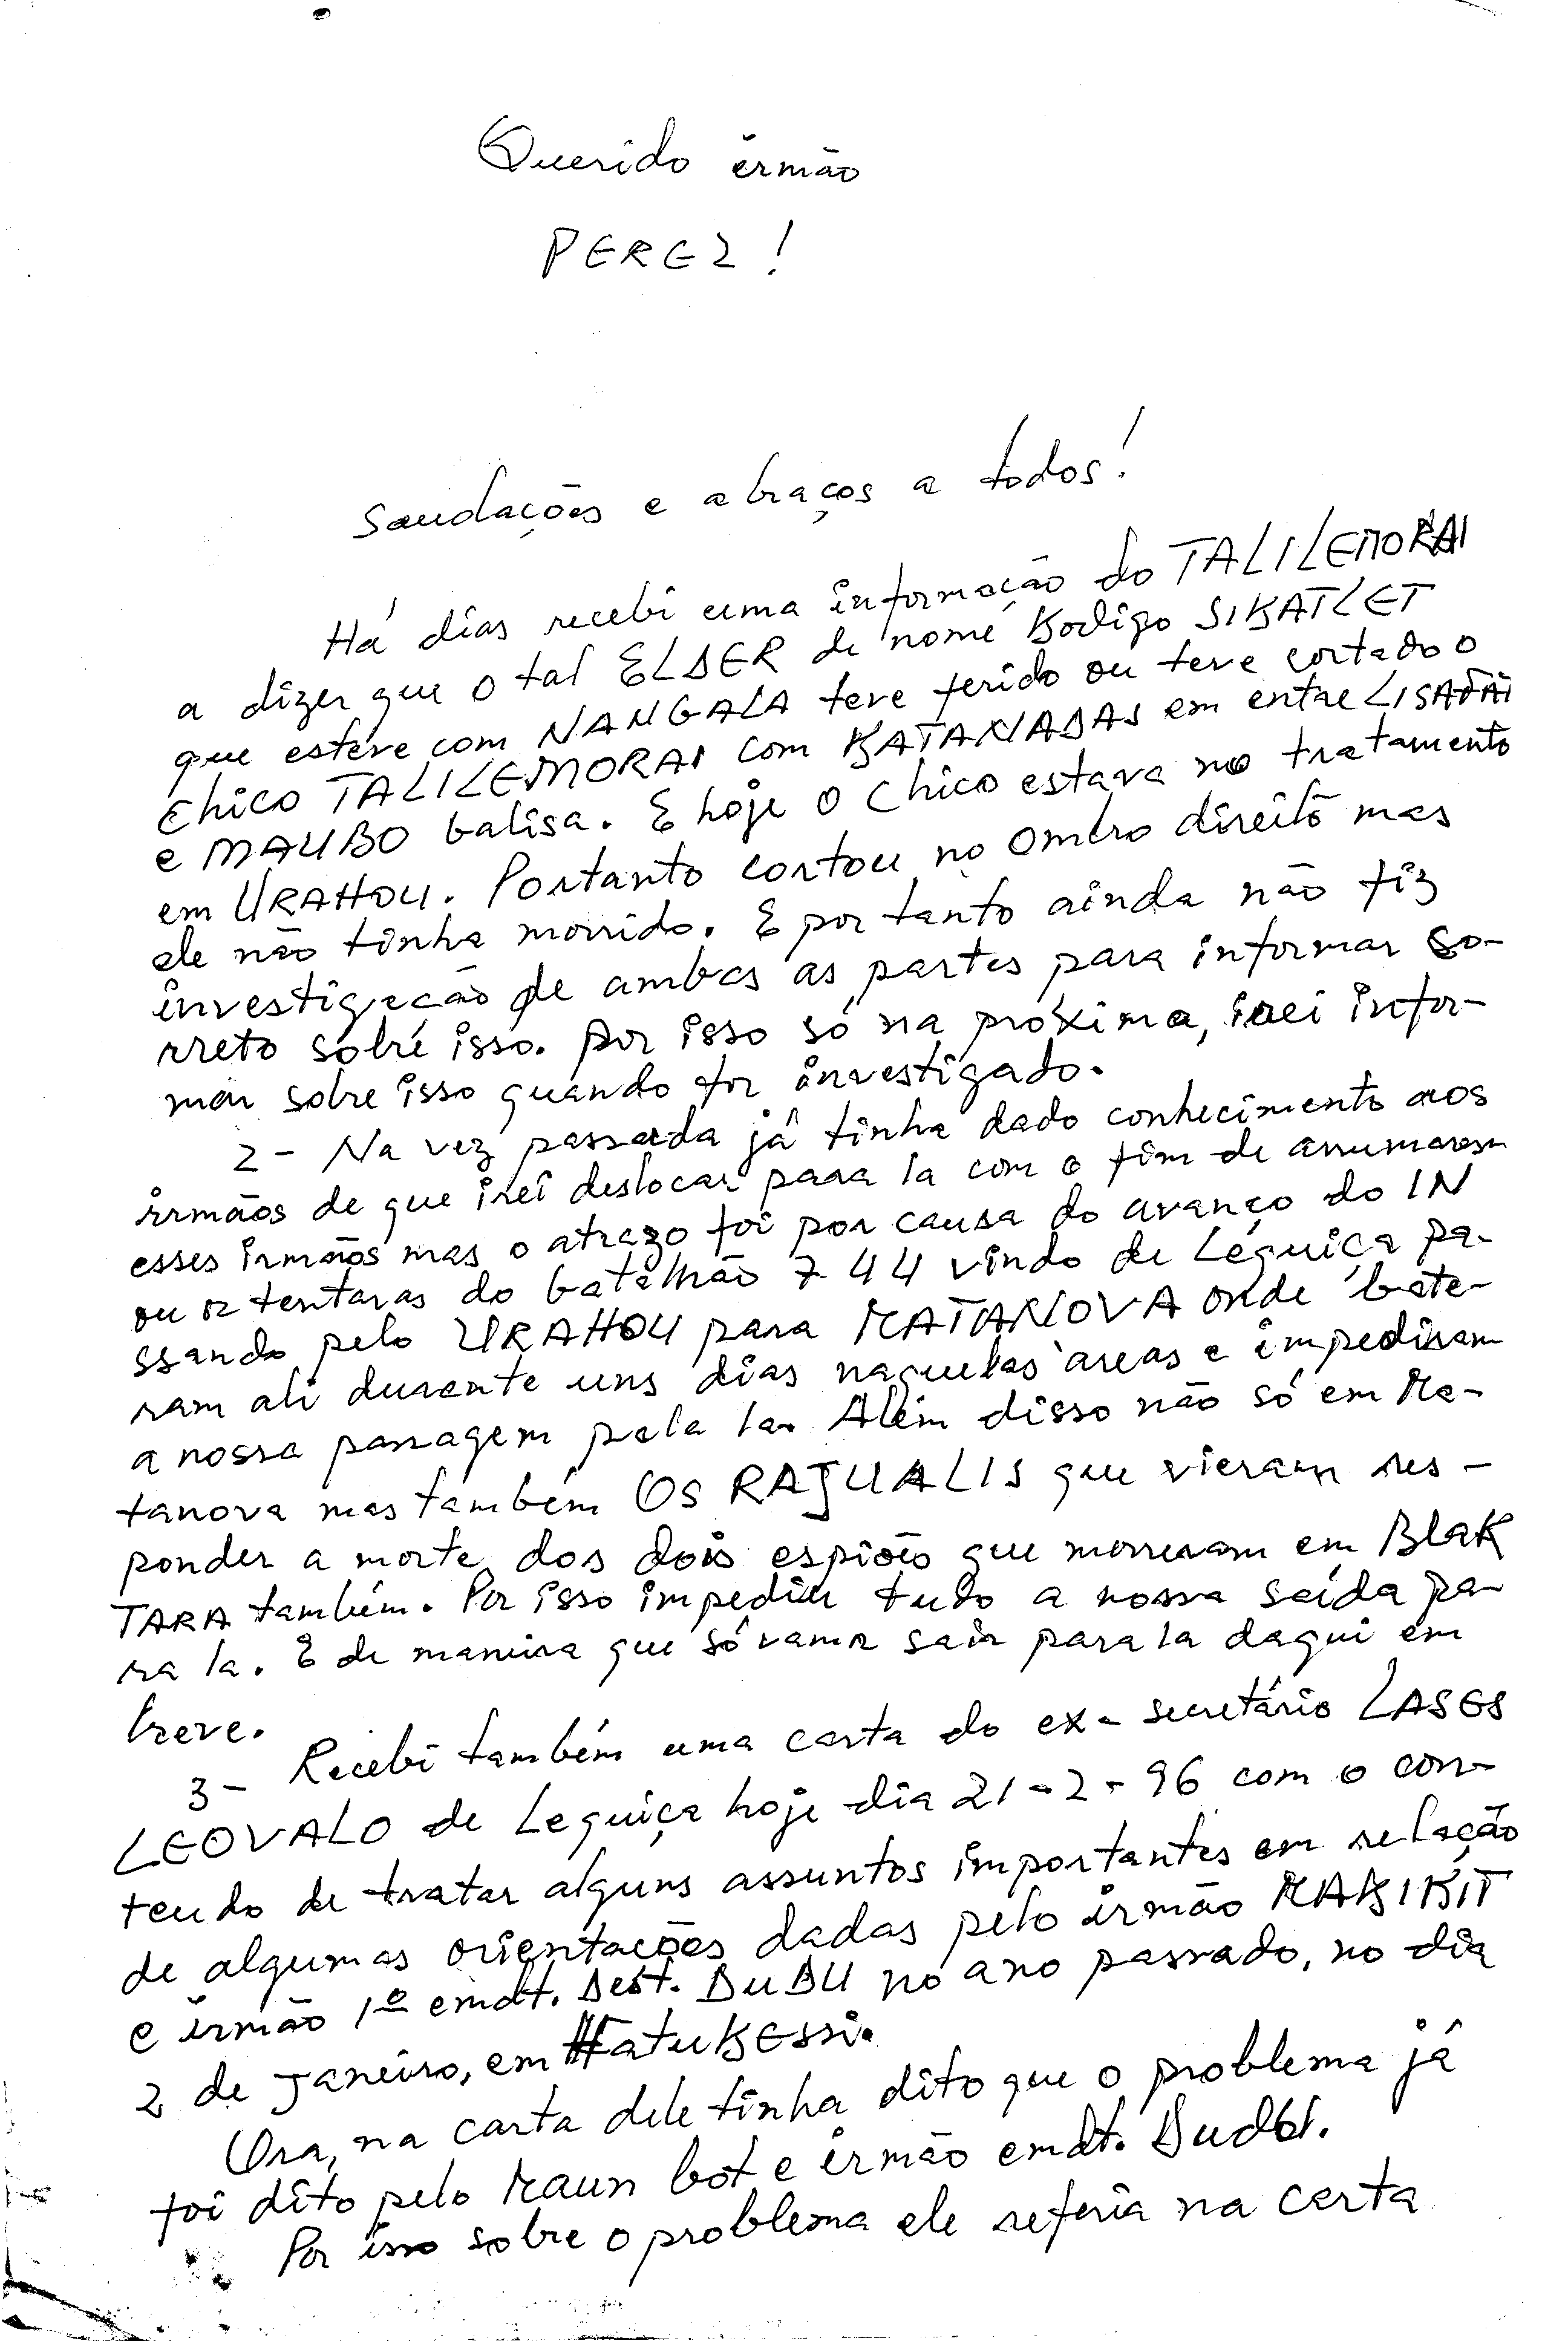 Querido irmão
PEREZ!
Saudações e abraços a todos!
Há dias recebi uma informação do TALILEMORAI
a dizer que o tal ELDER de nome Kodigo SIKATLET
que esteve com NANGALA teve ferido ou teve cortado o
Chico TALILEMORAI com KATANADAS em entre LISAFAI
e MAUBO balisa. E hoje o Chico estava no tratamento
em URAHOU. Portanto cortou no ombro direito mas
ele não tinha morrido. E por tanto ainda não fiz
investigação de ambas as partes para informar co-
rreto sobre isso. Por isso só na próxima, irei infor-
mar sobre isso quando for investigado.
2- Na vez passada já tinha dado conhecimento aos
irmãos de que irei deslocar para la com o fim de arrumarem
esses irmãos mas o atrazo foi por causa do avanço do IN
ou os tentaras do batalhão 744 vindo de Leguiça pa-
ssando pelo URAHOU para MATANOVA onde bate-
ram ali durante uns dias naquelas áreas e impediram
a nossa passagem pela la. Além disso não só em Ma-
tanova mas também Os RAJUALIS que vieram res-
ponder a morte dos dois espiões que morreram em BLAK
TARA também. Por isso impediu tudo a nossa saída pa-
ra la. E de maneira que só vamos sair para la daqui em
breve.
3- Recebi também uma carta do ex-secretário LASES
LEOVALO de Leguiça hoje dia 21-2-96 com o con-
teudo de tratar alguns assuntos importantes em relação
de algumas orientações dadas pelo irmão MAKIKIT
e irmão 1º cmdt. Dest. DUDU no ano passado, no dia
2 de Janeiro, em FatuKEssi.
Ora, na carta dele tinha dito que o problema já
foi dito pelo Maun bot e irmão cmdt. Dudu.
Por isso sobre o problema ele referia na carta